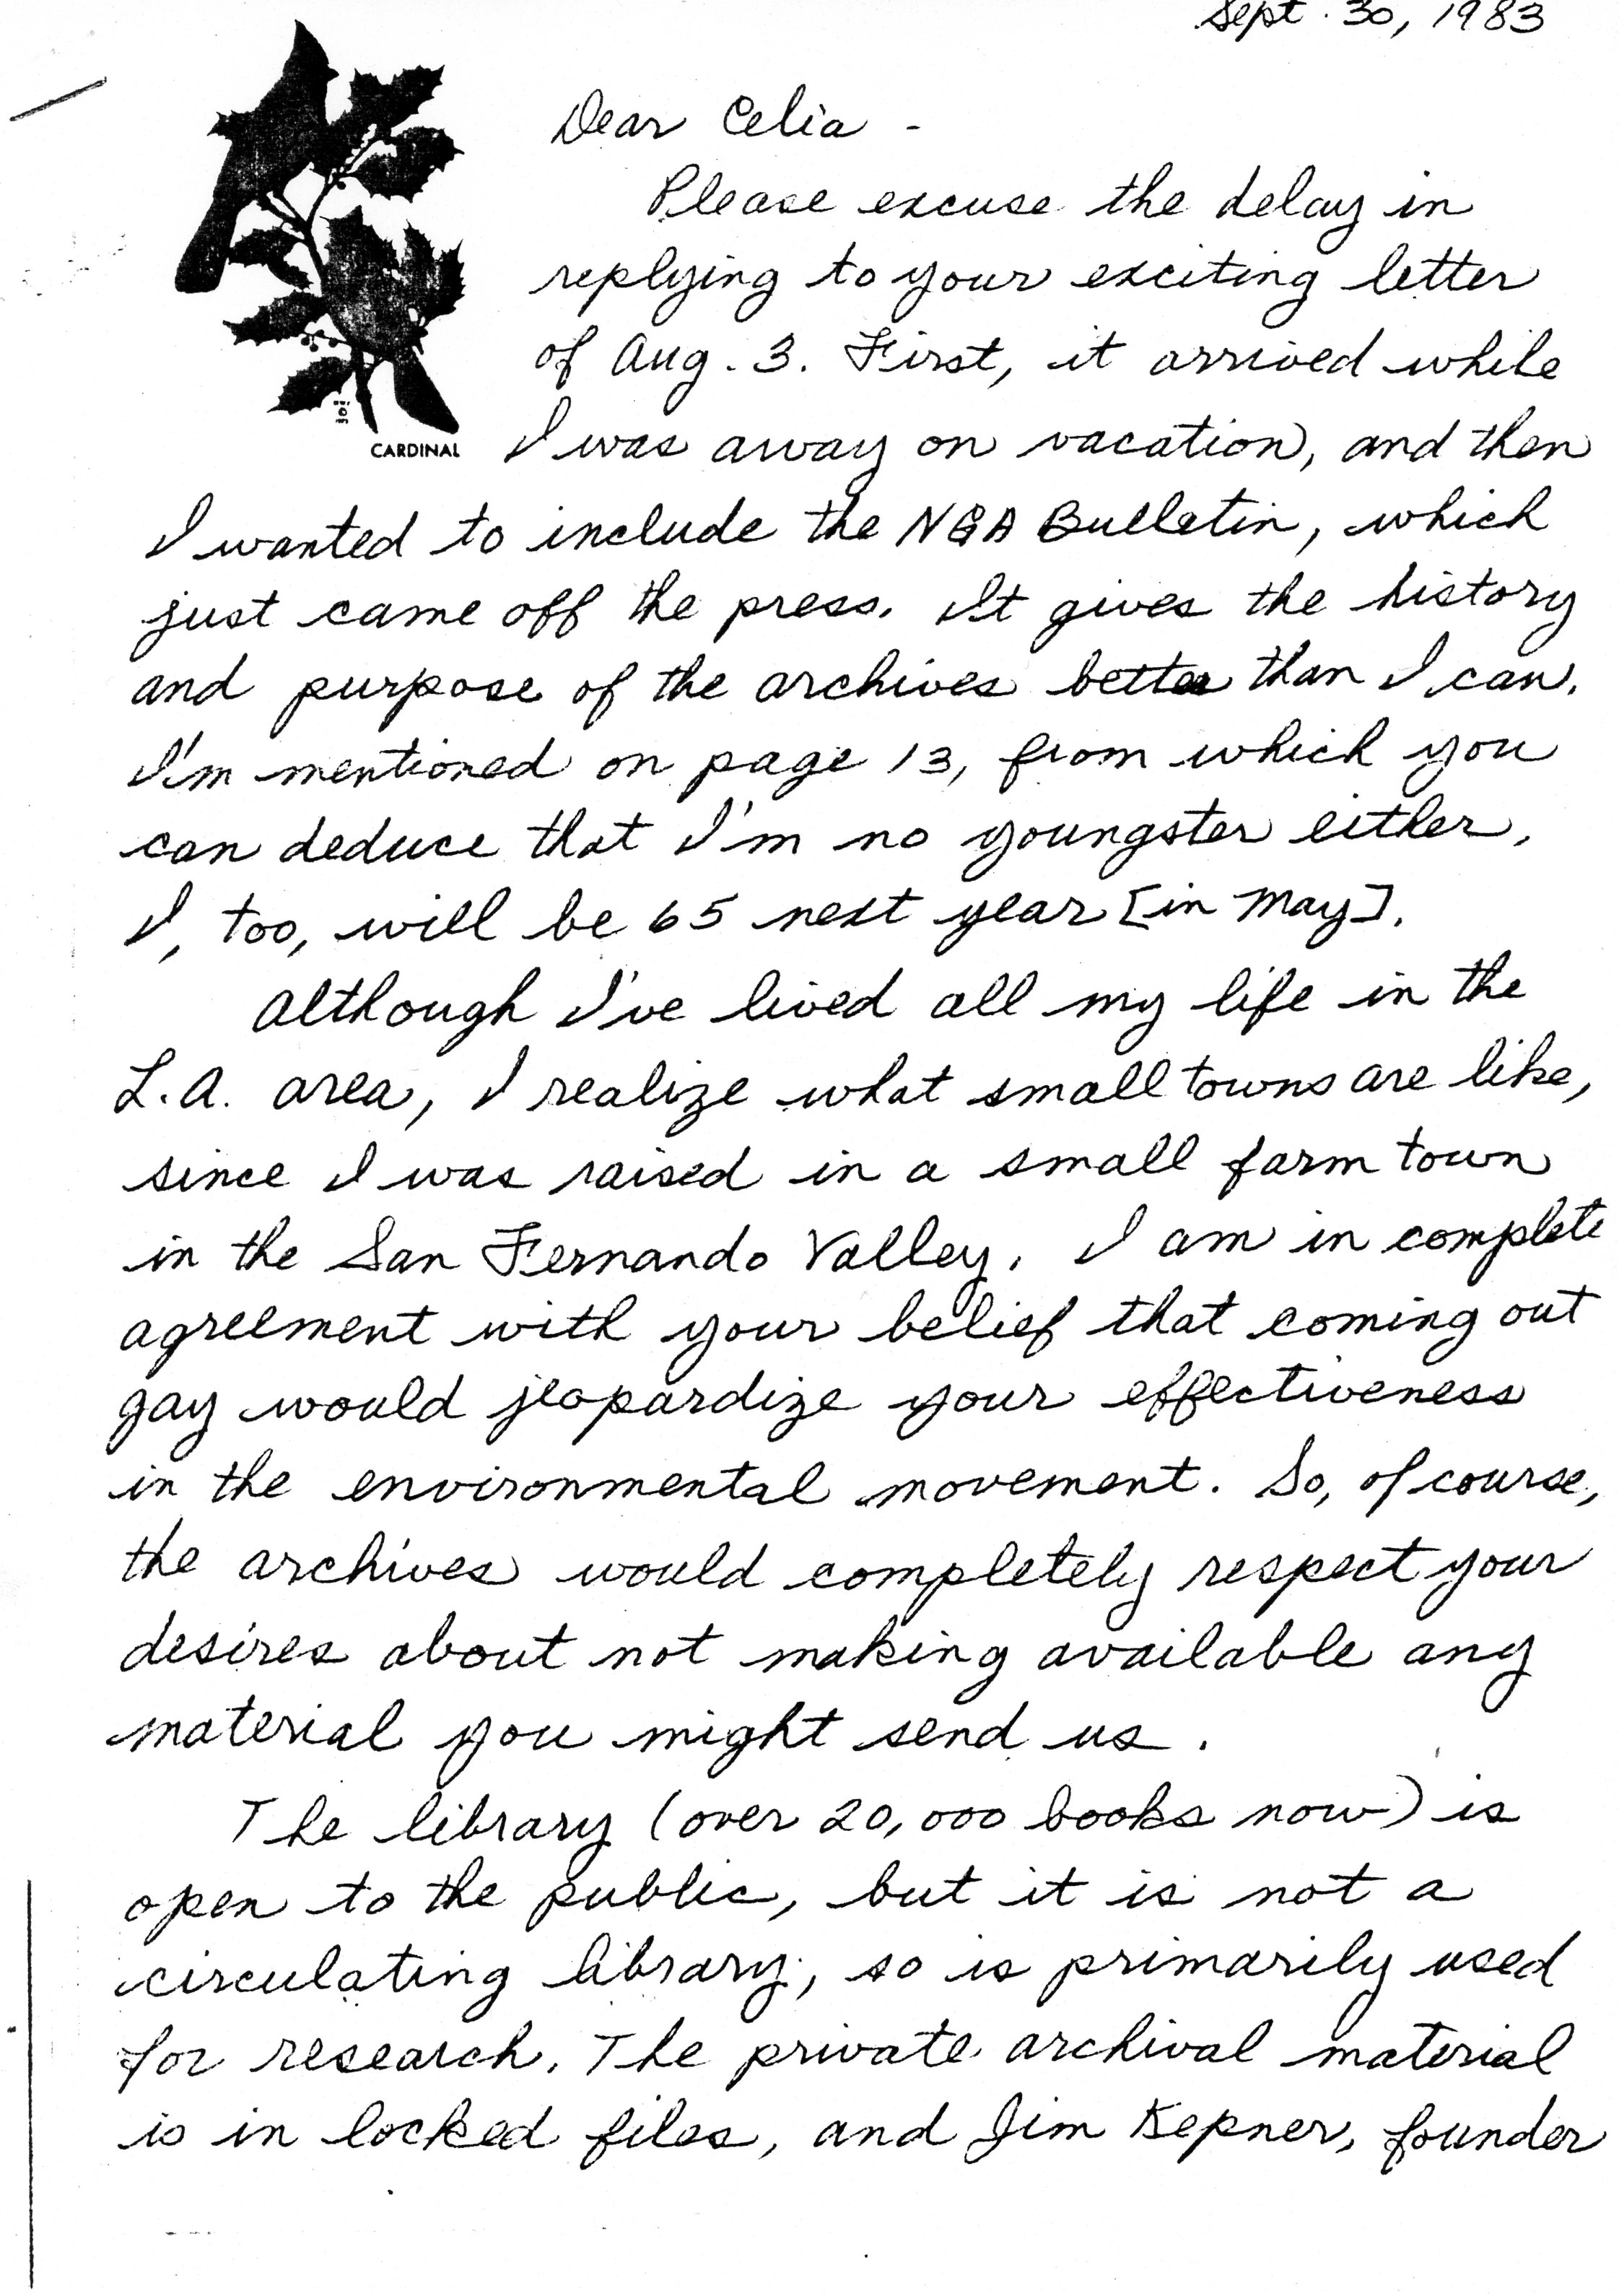 Sept. 30, 1983
Dear Celia -
Please excuse the delay in
replying to your exciting letter
of Aug. 3. First, it arrived while
CARDINAL
I was away on vacation, and then
I wanted to include the NGA Bulletin, which
just came off the press. It gives the history
and purpose of the archives better than I can.
I'm mentioned on page 13, from which you
can deduce that I'm no youngster either.
I, too, will be 65 next year [in May].
Although I've lived all my life in the
L.A. area, I realize what small towns are like,
since I was raised in a small farm town
in the San Fernando Valley. I am in complete
agreement with your belief that coming out
gay would jeopardize your effectiveness
in the environmental movement. So, of course,
the archives would completely respect your
desires about not making available any
material you might send us.
The library (over 20,000 books now) is
open to the public, but it is not a
circulating library, so is primarily used
for research. The private archival material
is in locked files, and Jim Kepner, founder